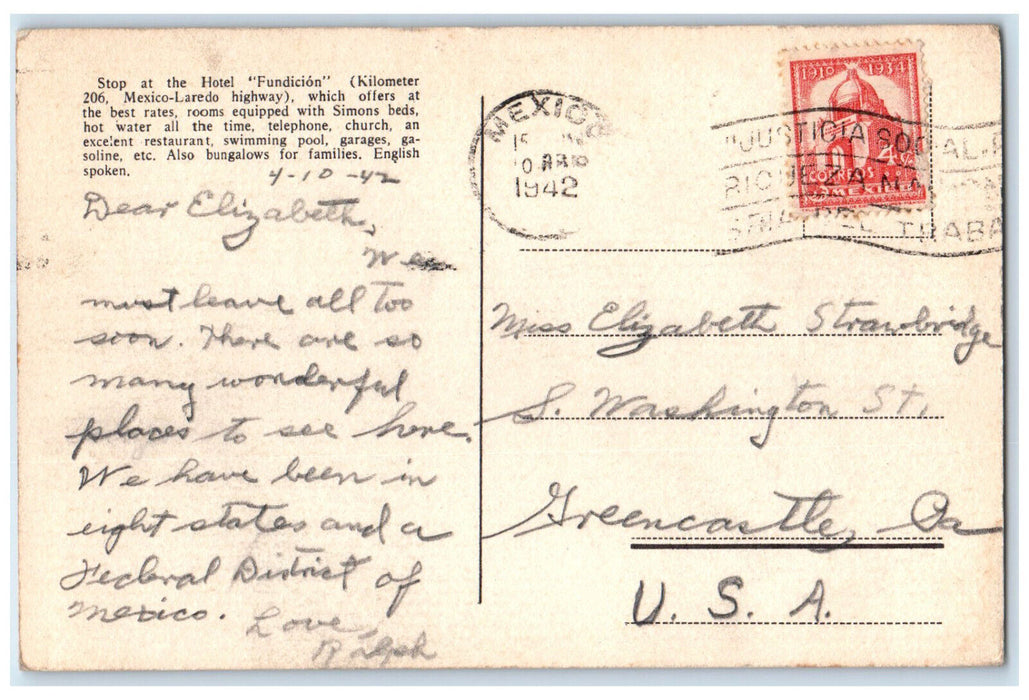 Stop at the Hotel "Fundición" (Kilometer
206, Mexico-Laredo highway), which offers at
the best rates, rooms equipped with Simons beds,
hot water all the time, telephone, church, an
excelent restaurant, swimming pool, garages, ga-
soline, etc. Also bungalows for families. English
spoken.
4-10-42
Dear Elizabeth,
We
must leave all too
soon. There are so
many wonderful
places to see here.
We have been in
eight states and a
Federal District of
Mexico.
Love,
Ralph
MEXICO
1942
1910 1934
CORREOS
MEXICO
JUSTICIA SOCIAL
RIQUEZA NA
DEL TRABA
Miss Elizabeth Strawbridge
S. Washington St.
Greencastle, Pa
U. S. A.